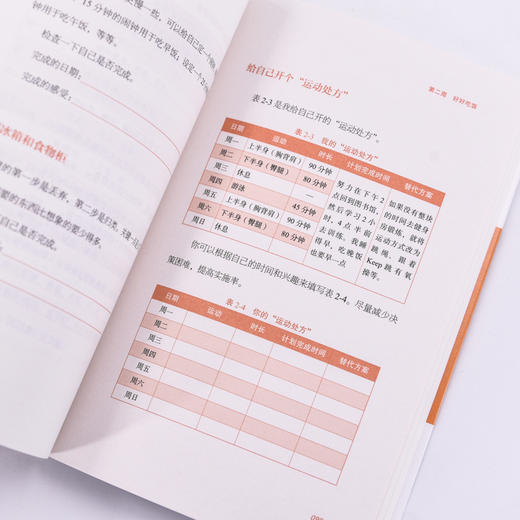 更慢一些，可以给自己定一个
15 分钟的闹钟用于吃早饭；设定一个 2
钟用于吃午饭，等等。
检查一下自己是否完成。
完成的日期：
完成的感受：
冰箱和食物柜
的第一步是丢弃，第二步是归类，
要的东西比想象的要少得多。
自己是否完成。
第二周 好好吃饭
给自己开个“运动处方”
表 2-3 是我给自己开的“运动处方”。
表 2-3 我的“运动处方”
日期 运动 时长 计划完成时间 替代方案
周一 上半身（胸背肩） 90 分钟
周二 下半身（臀腿） 80 分钟
周三 休息 —
周四 游泳 45 分钟
周五 上半身（胸背肩） 90 分钟
周六 下半身（臀腿） 80 分钟
周日 休息
努力在下午 2
点回到图书馆，
然后学习 2 小
时，4 点半前
去训练。我睡
得早，吃晚饭
也要早一点
如果没有整块
的时间去健身
房锻炼，就将
运动方式改为
跳绳、跟着
Keep 跳有氧
操等。
你可以根据自己的时间和兴趣来填写表 2-4。尽量减少决
策困难，提高实施率。
表 2-4 你的“运动处方”
日期 运动 时长 计划完成时间 替代方案
周一
周二
周三
周四
周五
周六
周日